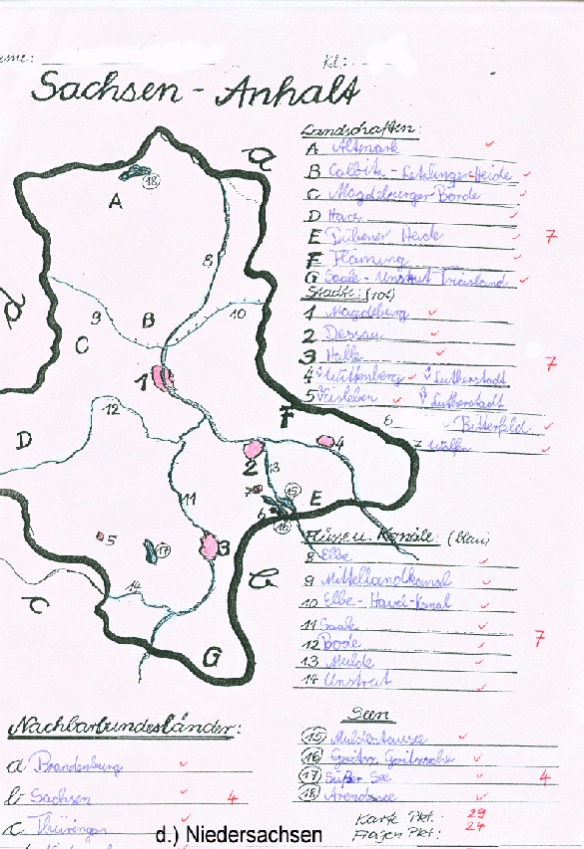 Kl.:
Sachsen - Anhalt
Landschaften:
A Altmark
B Colbitz - Letzlinger Heide
C Magdeburger Börde
D Harz
E Dübener Heide
7
F Fläming
G Saale - Unstrut Triasland
Städte: (rot)
1 Magdeburg
2 Dessau
3 Halle
7
4 Wittenberg Lutherstadt
5 Eisleben Lutherstadt
6 Bitterfeld
7 Wolfen
Flüsse u. Kanäle: (blau)
8 Elbe
9 Mittellandkanal
10 Elbe-Havel-Kanal
11 Saale
12 Bode
7
13 Mulde
14 Unstrut
Seen
15
16
17 Süßer See
4
18 Arendsee
Karte Pkt. 29
Fragen Pkt: 24
Nachbarbundesländer:
a Brandenburg
b Sachsen 4
c Thüringen
d.) Niedersachsen
a
18
A
8
d
9
B
10
C
1
12
F
D
2
4
13
7
15
E
11
6
16
5
17
3
b
c
14
G